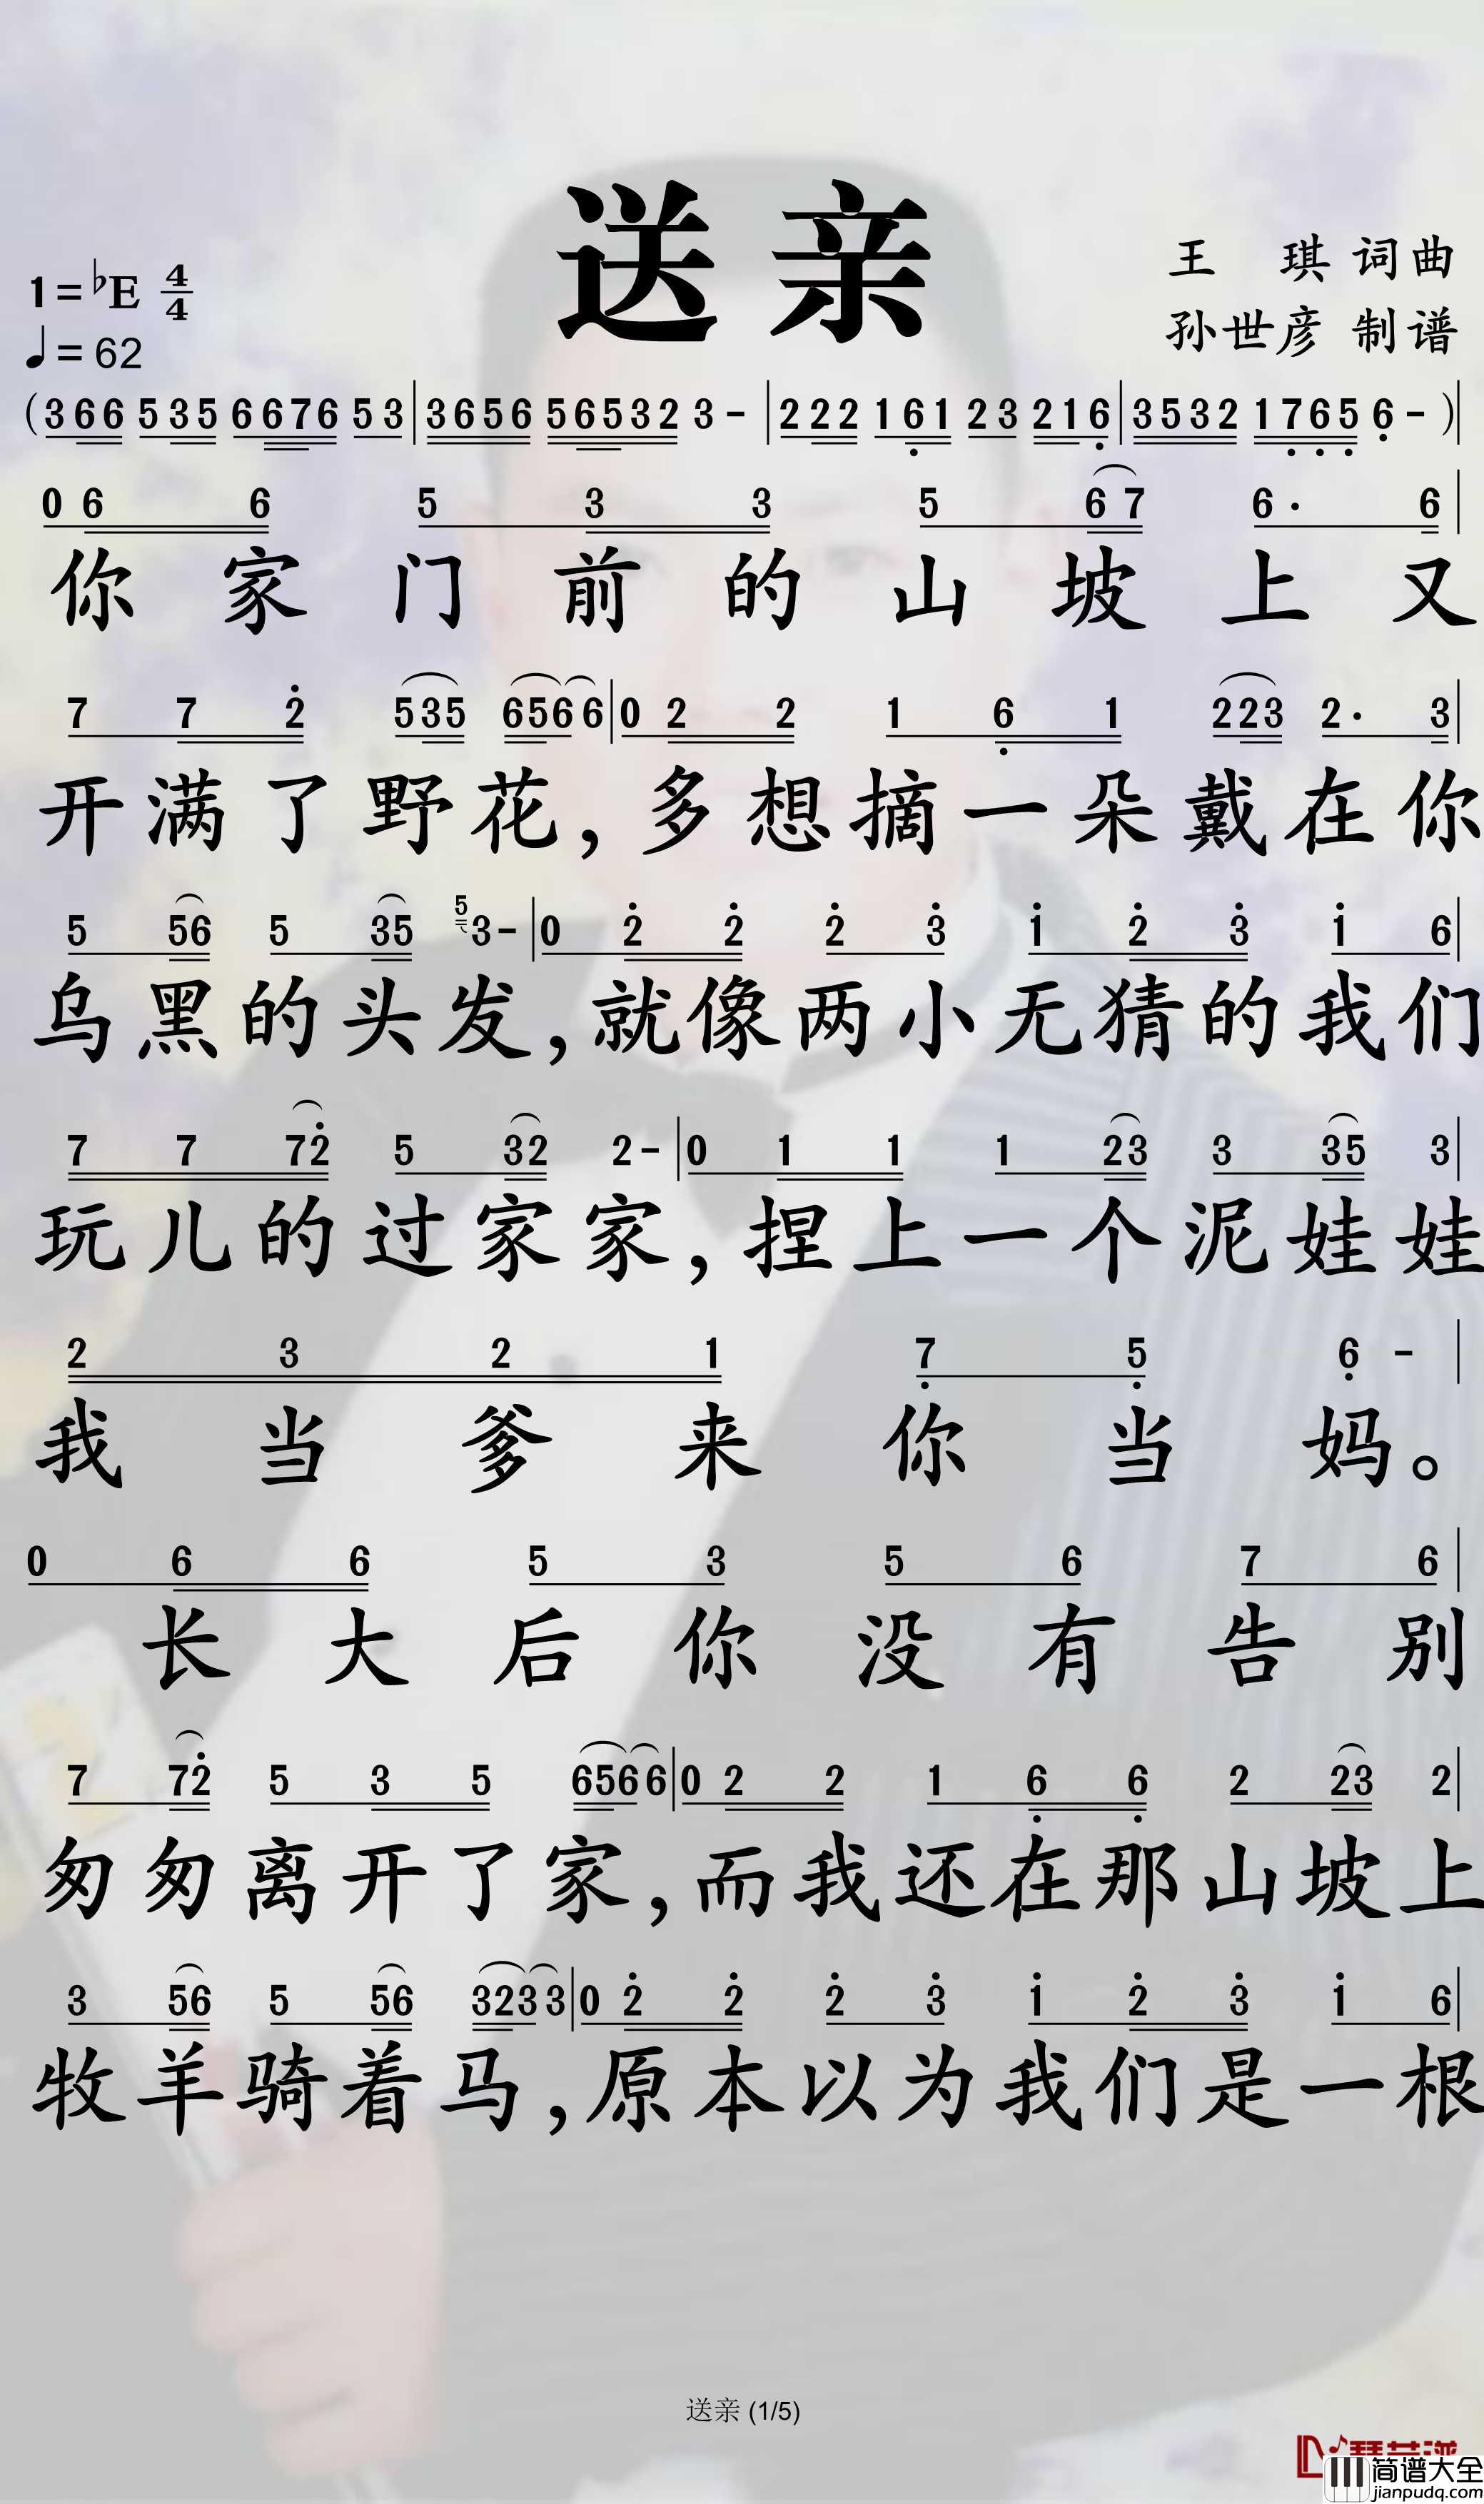 送亲
王 琪 词曲
孙世彦 制谱
1=♭E 4/4
♩=62
(3 6 6 5 3 5 6 6 7 6 5 3 | 3 6 5 6 5 6 5 3 2 3 - | 2 2 2 1 6̣ 1 2 3 2 1 6̣ | 3 5 3 2 1 7̣ 6̣ 5̣ 6̣ - ) |
0 6 6 5 3 3 5 6 7 6 · 6 |
你家门前的山坡上又
7 7 2̇ 5 3 5 6 5 6 6 | 0 2 2 1 6̣ 1 2 2 3 2 · 3 |
开满了野花,多想摘一朵戴在你
5 5 6 5 3 5 5 3 - | 0 2̇ 2̇ 2̇ 3̇ 1̇ 2̇ 3̇ 1̇ 6 |
乌黑的头发,就像两小无猜的我们
7 7 7 2̇ 5 3 2 2 - | 0 1 1 1 2 3 3 3 5 3 |
玩儿的过家家,捏上一个泥娃娃
2 3 2 1 7̣ 5̣ 6̣ - |
我当爹来你当妈。
0 6 6 5 3 5 6 7 6 |
长大后你没有告别
7 7 2̇ 5 3 5 6 5 6 6 | 0 2 2 1 6̣ 6̣ 2 2 3 2 |
匆匆离开了家,而我还在那山坡上
3 5 6 5 5 6 3 2 3 3 | 0 2̇ 2̇ 2̇ 3̇ 1̇ 2̇ 3̇ 1̇ 6 |
牧羊骑着马,原本以为我们是一根
送亲 (1/5)
简谱大全
jianpudq.com